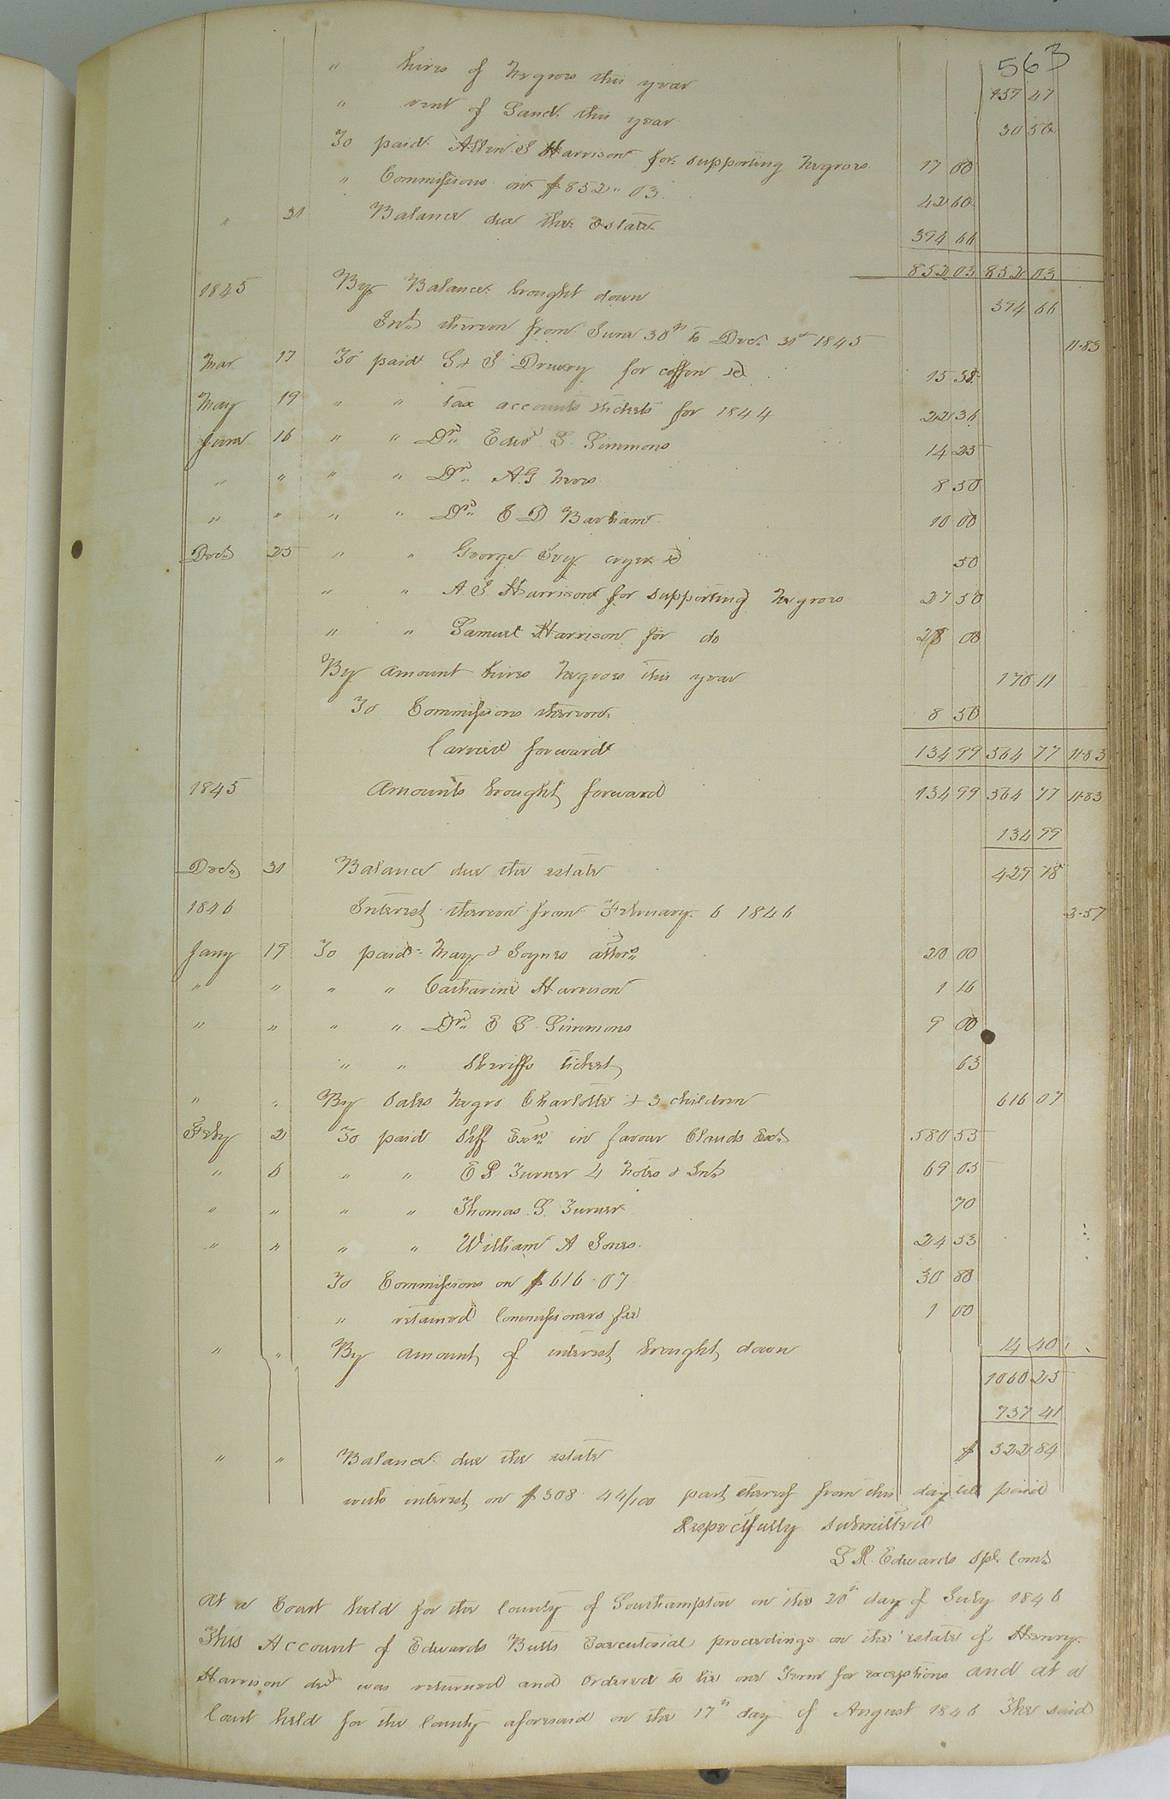 563
" hires of Negroes this year 157 47
" rent of Land this year 30 56
To paid A S Harrison for supporting Negroes 17 00
" Commissions on $852" 03 42 60
" 31 Balance due the Estate 394 66
852 03 852 03
1845 By Balance brought down 394 66
Int. thereon from June 30th to Decr. 31st 1845 11.83
Mar 17 To paid S & S Drewry for coffin &c 15 38
May 19 " " Tax accounts tickets for 1844 22 36
June 16 " " Dr. Edwd S. Simmons 14 25
" " " " Dr. A.G. 8 50
" " " " Dr. E D Barham 10 00
Decr. 25 " " George Ivy cryer &c 50
" " A. S Harrison for supporting Negroes 27 50
" " Samuel Harrison for do 28 00
By amount hires Negroes this year 170 11
To Commissions thereon 8 50
Carried forward 134 99 564 77 11.83
1845 Amounts brought forward 134 99 564 77 11.83
134 99
Decr. 31 Balance due the estate 429 78
1846 Interest thereon from February 6 1846 2.57
Jany 19 To paid May & attos. 20 00
" " " " Catharine Harrison 1 16
" " " " Dr. E S. Simmons 9 00
" " Sheriffs ticket 63
" " By Sales Negro Charlotte & 3 children 616 07
Feby 2 To paid Shff Exon in favour Clauds Exr. 580 53
" 6 " " E P Turner 4 Notes & Int. 69 05
" " " " Thomas S. Turner 70
" " " " William A Jones. 24 53
To Commissions on $616.07 30 80
" retained Commissioners fee 1 00
" " By amount of interest brought down 14 40
1060 25
737 41
" " Balance due the estate $ 322 84
with interest on $308 44/100 part thereof from this day till paid
Respectfully submitted
S R. Edwards Spl. Coms
At a Court held for the County of Southampton on the 20th day of July 1846
This Account of Edwards Butts Executorial proceedings on the estate of Henry
Harrison decd. was returned and Ordered to lie one Term for exceptions and at a
Court held for the County aforesaid on the 17th day of August 1846 The said